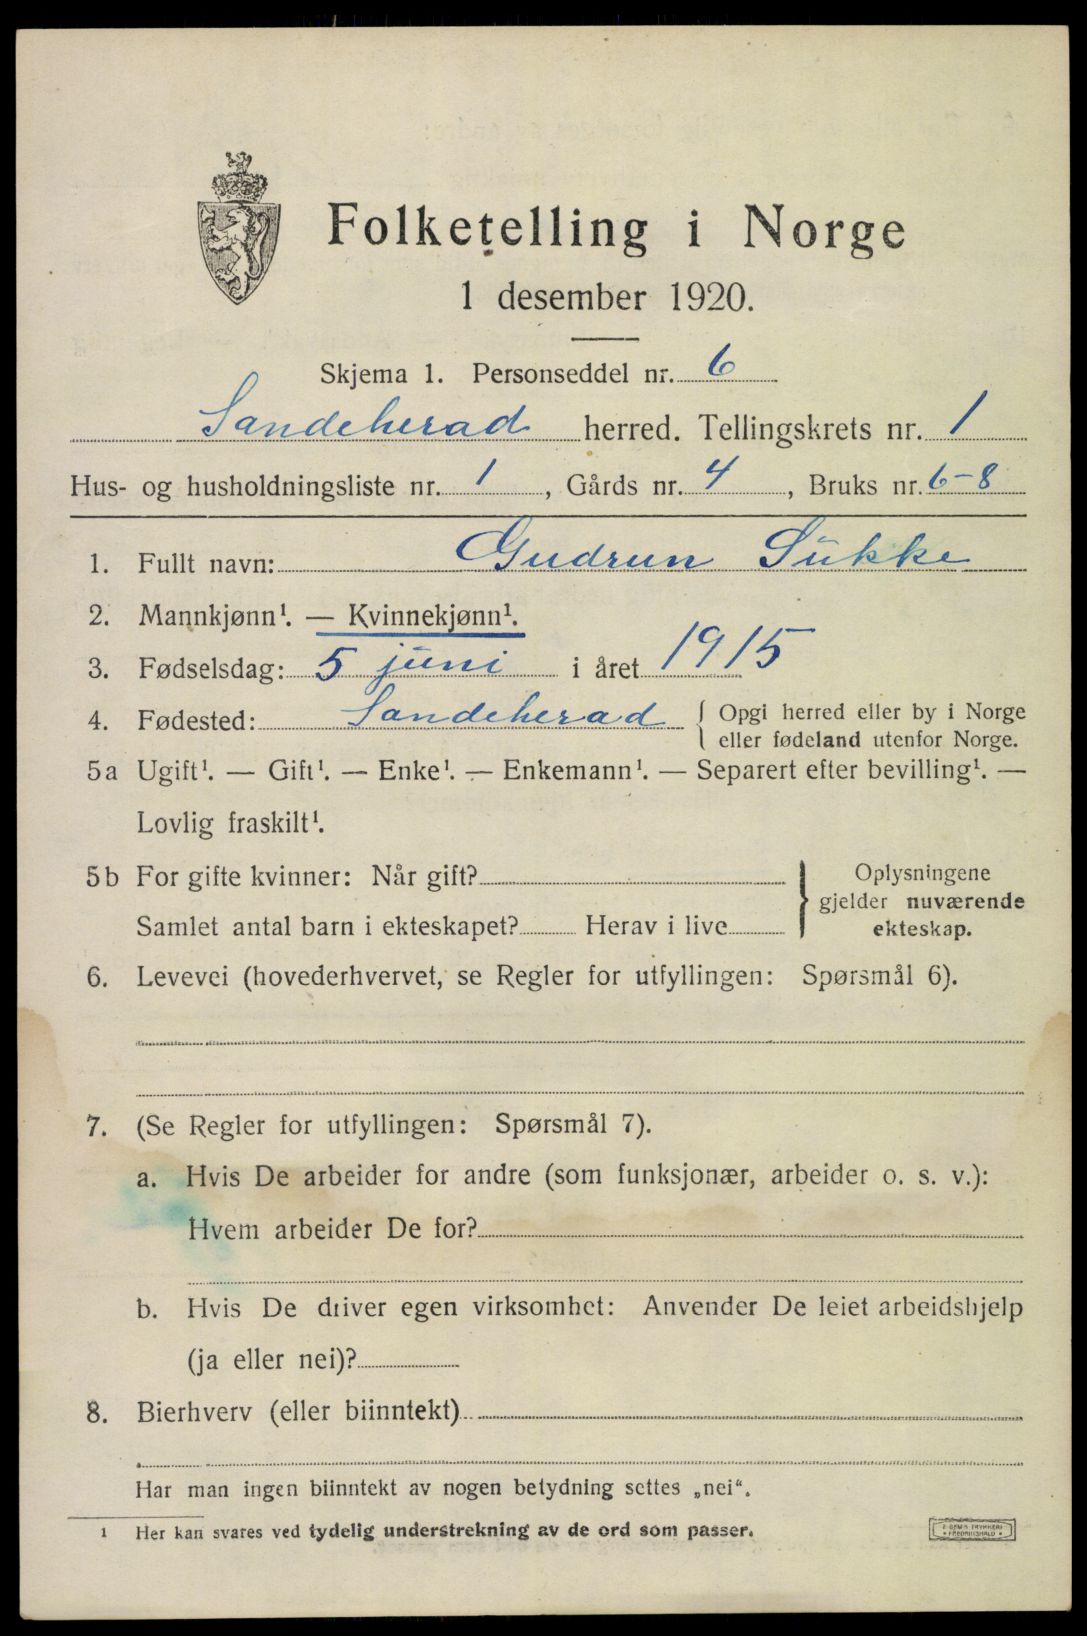 Folketelling i Norge
1 desember 1920.
Skjema 1. Personseddel nr. 6
Sandeherad herred. Tellingskrets nr. 1
Hus- og husholdningsliste nr. 1, Gårds nr. 4, Bruks nr. 6-8
1. Fullt navn: Gudrun Sükke
2. Mannkjønn¹. — Kvinnekjønn¹.
3. Fødselsdag: 5 jüni i året 1915
4. Fødested: Sandeherad { Opgi herred eller by i Norge
eller fødeland utenfor Norge.
5a Ugift¹. — Gift¹. — Enke¹. — Enkemann¹. — Separert efter bevilling¹. —
Lovlig fraskilt¹.
5b For gifte kvinner: Når gift? } Oplysningene
gjelder nuværende
Samlet antal barn i ekteskapet? Herav i live
ekteskap.
6. Levevei (hovederhvervet, se Regler for utfyllingen: Spørsmål 6).
7. (Se Regler for utfyllingen: Spørsmål 7).
a. Hvis De arbeider for andre (som funksjonær, arbeider o. s. v.):
Hvem arbeider De for?
b. Hvis De driver egen virksomhet: Anvender De leiet arbeidshjelp
(ja eller nei)?
8. Bierhverv (eller biinntekt)
Har man ingen biinntekt av nogen betydning settes „nei“.
1 Her kan svares ved tydelig understrekning av de ord som passer.